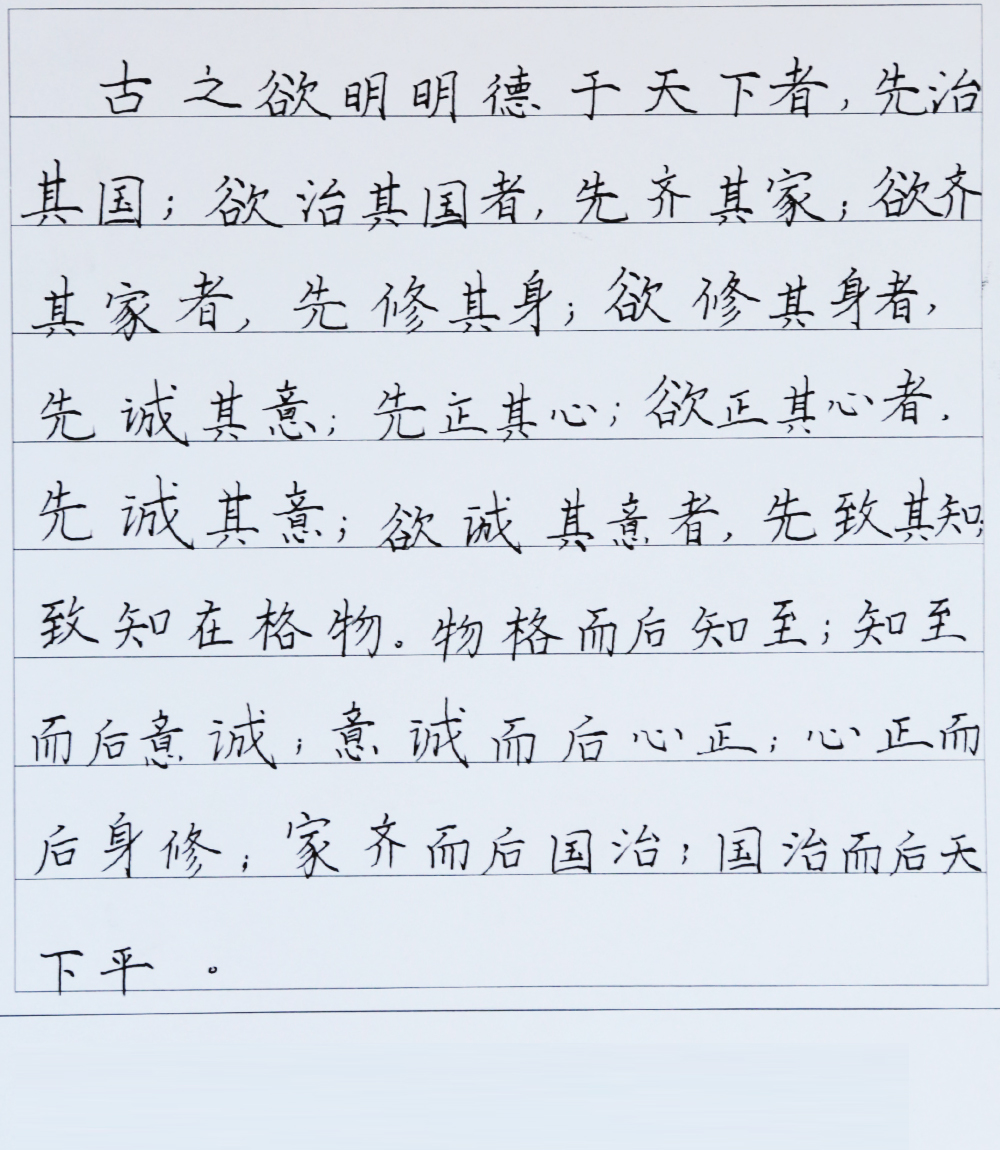 古之欲明明德于天下者，先治
其国；欲治其国者，先齐其家；欲齐
其家者，先修其身；欲修其身者，
先诚其意；先正其心；欲正其心者，
先诚其意；欲诚其意者，先致其知；
致知在格物。物格而后知至；知至
而后意诚；意诚而后心正；心正而
后身修；家齐而后国治；国治而后天
下平。